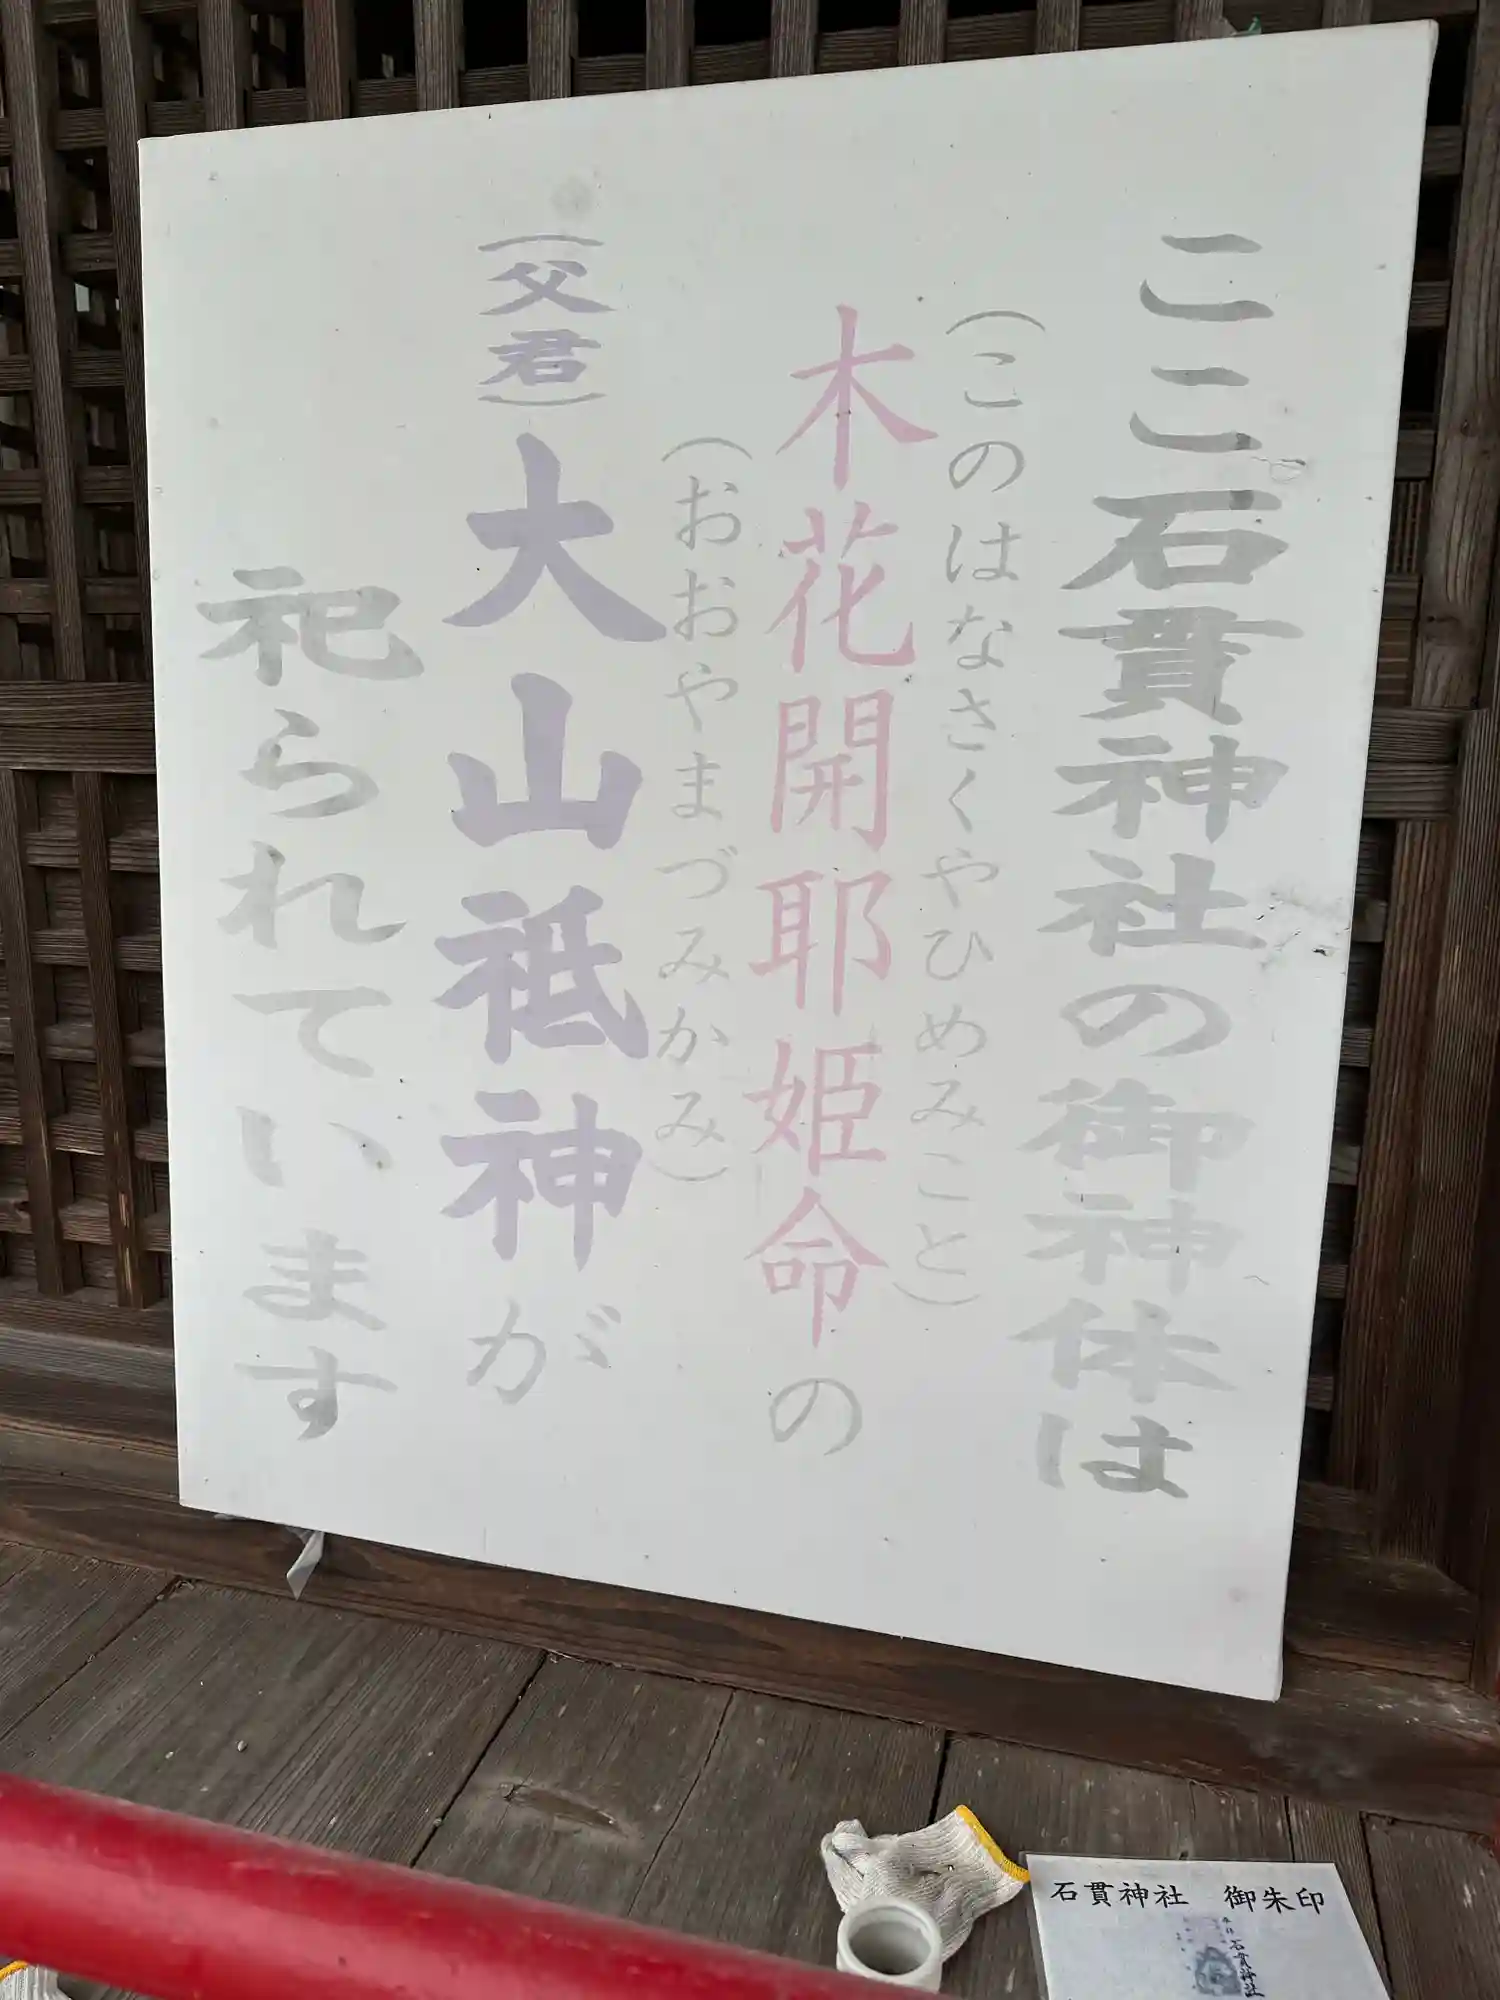 ここ石貫神社の御神体は
(このはなさくやひめみこと)
木花開耶姫命の
(おおやまづみかみ)
(父君)大山祗神が
祀られています
石貫神社　御朱印
石貫神社